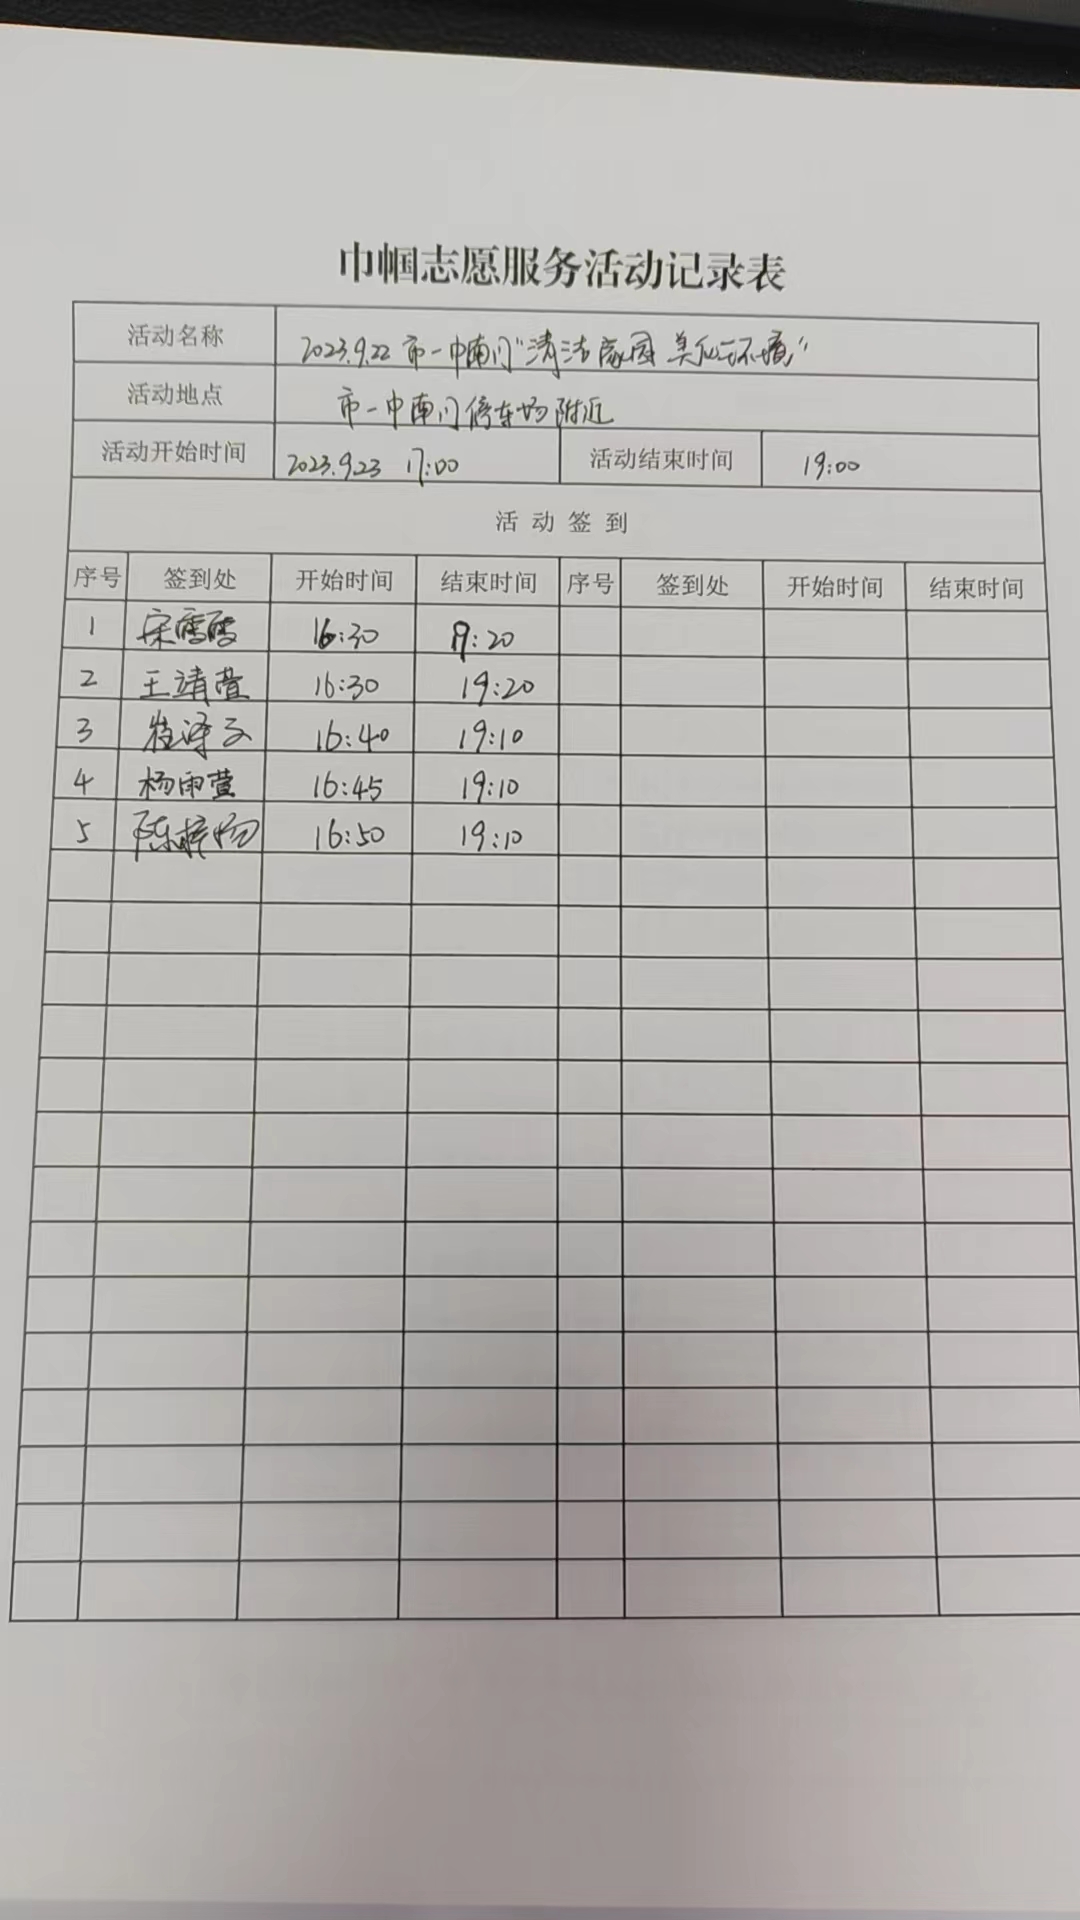 巾帼志愿服务活动记录表
活动名称 2023.9.22 市一中南门"清洁家园 美化环境"
活动地点 市一中南门停车场附近
活动开始时间 2023.9.23 17:00 活动结束时间 19:00
活动签到
序号 签到处 开始时间 结束时间 序号 签到处 开始时间 结束时间
1 宋雪雪 16:30 19:20
2 王靖萱 16:30 19:20
3 16:40 19:10
4 杨雨萱 16:45 19:10
5 陈梓 16:50 19:10